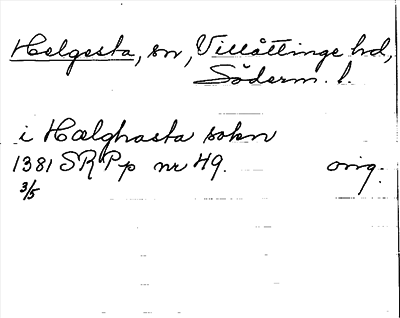 Helgesta, sn, Villåttinge hd,
Söderm. l.
i Hælghasta sokn
1381 SRPp nr 49. orig.
3/5